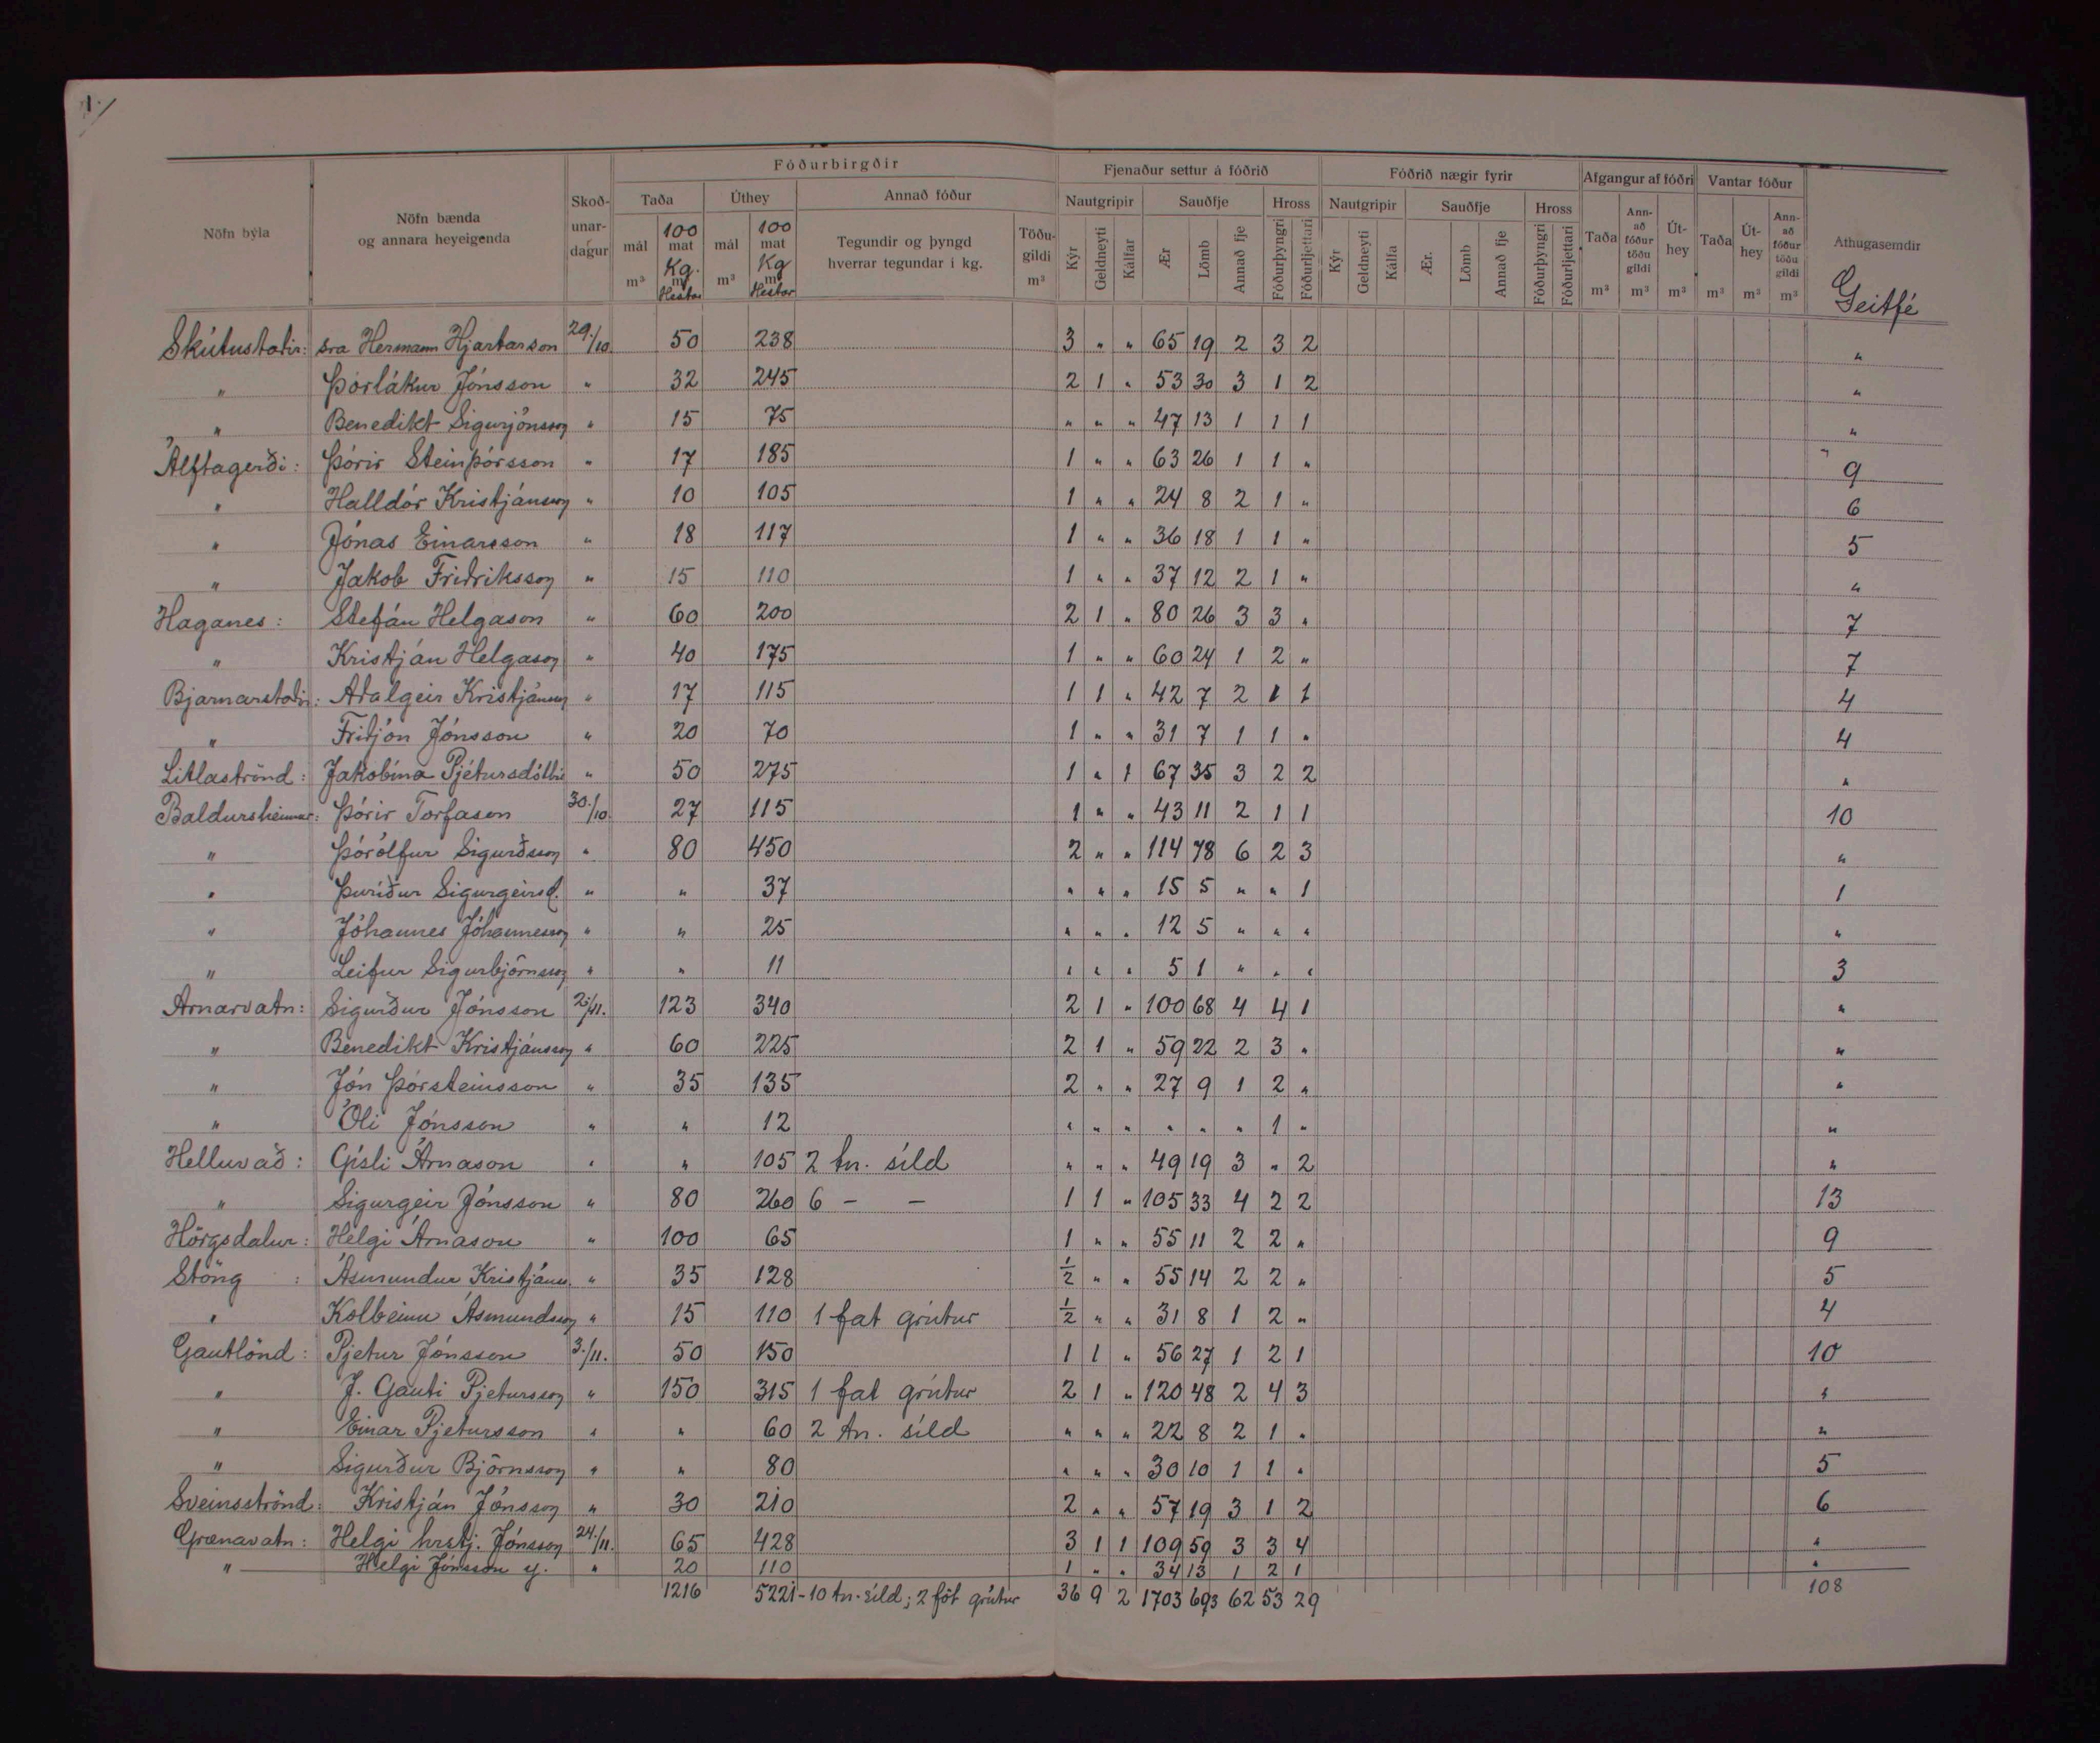 1./
Fóðurbirgðir Fjenaður settur á fóðrið Fóðrið nægir fyrir Afgangur af fóðri Vantar fóður
Nöfn býla Nöfn bænda og annara heyeigenda Skoð-unar-dagur Taða Úthey Annað fóður Nautgripir Sauðfje Hross Nautgripir Sauðfje Hross Taða Ann-að fóður töðu gildi Út-hey Taða Út-hey Ann-að fóður töðu gildi Athugasemdir
mál m³ 100 mat Kg. m³ Hestar mál m³ 100 mat Kg m³ Hestar Tegundir og þyngd hverrar tegundar í kg. Töðu-gildi m³ Kýr Geldneyti Kálfar Ær Lömb Annað fje Fóðurþyngri Fóðurljettari Kýr Geldneyti Kálfa Ær. Lömb Annað fje Fóðurþyngri Fóðurljettari m³ m³ m³ m³ m³ m³ Geitfé
Skútustaðir: sra Hermann Hjartarson 29./10. 50 238 3 " " 65 19 2 3 2 "
" Þorlákur Jónsson " 32 245 2 1 " 53 30 3 1 2 "
" Benedikt Sigurjónsson " 15 75 " " " 47 13 1 1 1 "
Álftagerði: Þórir Steinþórsson " 17 185 1 " " 63 26 1 1 " 9
" Halldór Kristjánsson " 10 105 1 " " 24 8 2 1 " 6
" Jónas Einarsson " 18 117 1 " " 36 18 1 1 " 5
" Jakob Friðriksson " 15 110 1 " " 37 12 2 1 " "
Haganes: Stefán Helgason " 60 200 2 1 " 80 26 3 3 " 7
" Kristján Helgason " 40 175 1 " " 60 24 1 2 " 7
Bjarnarstaðir: Aðalgeir Kristjánsson " 17 115 1 1 " 42 7 2 1 1 4
" Friðjón Jónsson " 20 70 1 " " 31 7 1 1 " 4
Litlaströnd: Jakobína Pjétursdóttir " 50 275 1 " 1 67 35 3 2 2 "
Baldursheimur: Þórir Torfason 30./10. 27 115 1 " " 43 11 2 1 1 10
" Þórólfur Sigurðsson " 80 450 2 " " 114 78 6 2 3 "
" Þuríður Sigurgeirsd. " " 37 " " " 15 5 " " 1 1
" Jóhannes Jóhannesson " " 25 " " " 12 5 " " " "
" Leifur Sigurbjörnsson " " 11 " " " 5 1 " " " 3
Arnarvatn: Sigurður Jónsson 2./11. 123 340 2 1 " 100 68 4 4 1 "
" Benedikt Kristjánsson " 60 225 2 1 " 59 22 2 3 " "
" Jón Þorsteinsson " 35 135 2 " " 27 9 1 2 " "
" Óli Jónsson " " 12 " " " " " " 1 " "
Helluvað: Gísli Árnason " " 105 2 tn. síld " " " 49 19 3 " 2 "
" Sigurgeir Jónsson " 80 260 6 - - 1 1 " 105 33 4 2 2 13
Hörgsdalur: Helgi Árnason " 100 65 1 " " 55 11 2 2 " 9
Stöng : Ásmundur Kristjánss. " 35 128 ½ " " 55 14 2 2 " 5
" Kolbeinn Ásmundsson " 15 110 1 fat grútur ½ " " 31 8 1 2 " 4
Gautlönd: Pjetur Jónsson 3./11. 50 150 1 1 " 56 27 1 2 1 10
" J. Gauti Pjetursson " 150 315 1 fat grútur 2 1 " 120 48 2 4 3 "
" Einar Pjetursson " " 60 2 tn. síld " " " 22 8 2 1 " "
" Sigurður Björnsson " " 80 " " " 30 10 1 1 " 5
Sveinsströnd: Kristján Jónsson " 30 210 2 " " 57 19 3 1 2 6
Grænavatn: Helgi hrstj. Jónsson 24./11. 65 428 3 1 1 109 59 3 3 4 "
" Helgi Jónsson y. " 20 110 1 " " 34 13 1 2 1 "
1216 5221 - 10 tn. síld; 2 föt grútur 36 9 2 1703 693 62 53 29 108